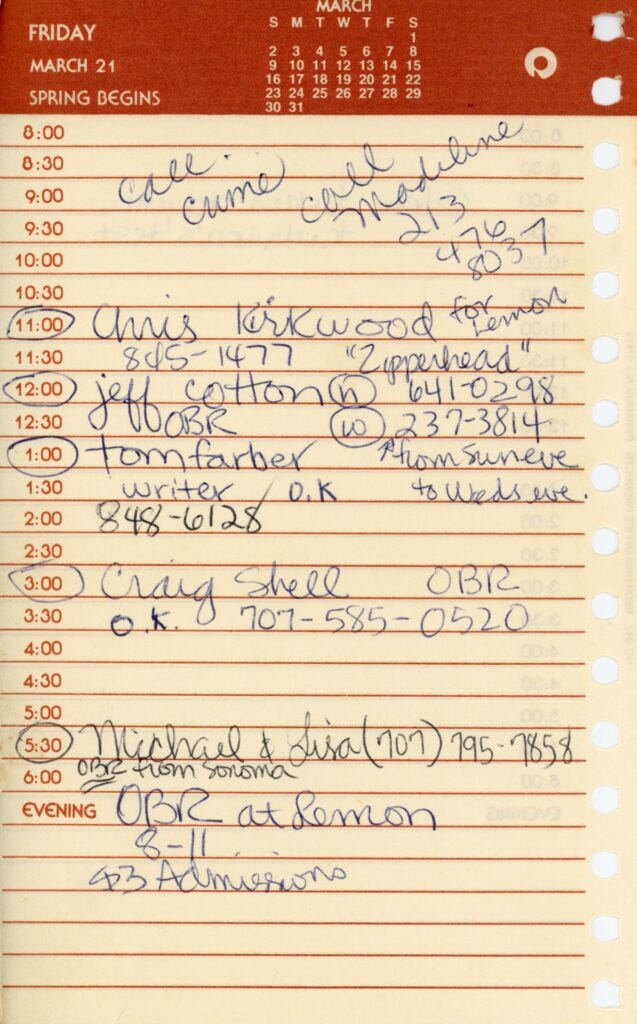 MARCH
S M T W T F S
1
2 3 4 5 6 7 8
9 10 11 12 13 14 15
16 17 18 19 20 21 22
23 24 25 26 27 28 29
30 31
FRIDAY
MARCH 21
SPRING BEGINS
8:00
8:30
call call Madeline
9:00
213
9:30
476
10:00
8037
10:30
11:00 Chris Kirkwood for Lemon
11:30 845-1477 "Zipperhead"
12:00 jeff cotton h 641-0298
12:30 OBR w 237-3814
1:00 tom farber from sun eve
1:30 writer / O.K to Weds eve.
2:00 848-6128
2:30
3:00 Craig Shell OBR
3:30 O.K. 707-585-0520
4:00
4:30
5:00
5:30 Michael & Lisa (707) 795-7858
6:00 OBR from Sonoma
EVENING OBR at Lemon
8-11
$3 Admissions